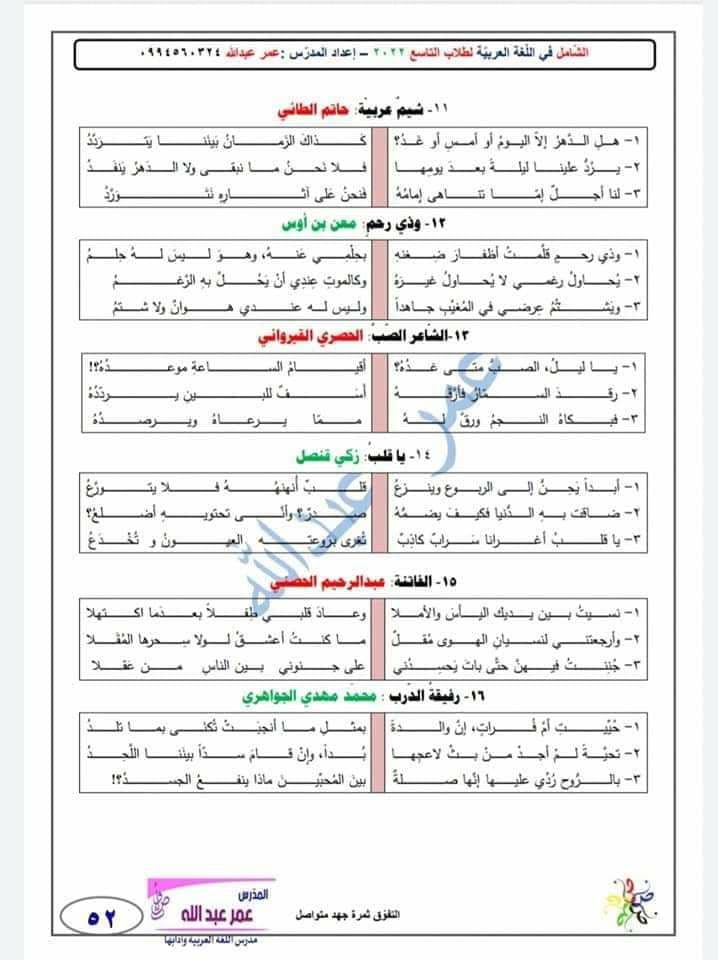 الشامل في اللغة العربية لطلاب التاسع ٢٠٢٢ – إعداد المدرّس : عمر عبدالله ٠٩٩٤٥٦٠٣٢٤
١١- شيمٌ عربيّة: حاتم الطائي
١- هلِ الدّهرُ إلاّ اليومُ أو أمسِ أو غدُ؟ كذاكَ الزّمانُ بيننا يتردّدُ
٢- يردُّ علينا ليلةً بعدَ يومِها فلا نحنُ ما نبقى ولا الدهرُ ينفدُ
٣- لنا أجلٌ إمّا تناهى إمامُهُ فنحنُ عَلى آثارِهِ نَتَورّدُ
١٢- وذي رحمٍ: معن بن أوس
١- وذي رحمٍ قلّمتُ أظفارَ ضِغنهِ بجلْمي عَنهُ، وهوَ ليسَ لهُ حِلمُ
٢- يُحاولُ رغمي لا يُحاولُ غيرَهُ وكالموتِ عِندِي أنْ يَحُلّ بهِ الرَّغمُ
٣- ويَشتُمُ عِرضِي في المُغَيّبِ جاهداً وليس له عندي هوانٌ ولا شتمُ
١٣-الشاعر الصّبّ: الحصري القيرواني
١- يا ليلُ، الصبُّ متى غدُهُ؟ أقيامُ الساعةِ موعدُهُ؟!
٢- رقدَ السمّارُ فأرّقهُ أسفٌ للبينِ يردّدُهُ
٣- فبكاهُ النجمُ ورقّ لهُ ممّا يرعاهُ ويرصدُهُ
١٤- يا قلبُ: زكي قنصل
١- أبداً يَحِنُّ إلى الربوعِ وينزعُ قلبٌ أُنهنهُهُ فلا يتورّعُ
٢- ضاقت بهِ الدُّنيا فكيفَ يضمُّهُ صدرٌ؟ وأنّى تحتويهِ أضلعُ؟
٣- يا قلبُ أغرانا سَرابٌ كاذِبٌ تُغرى برَوعتِهِ العيونُ و تُخْدَعُ
١٥- الفاتنة: عبدالرحيم الحصني
١- نسيتُ بين يديكِ اليأسَ والأملا وعادَ قلبي طِفلاً بعدَما اكتهلا
٢- وأرجعتني لنسيانِ الهوى مُقَلٌ ما كنتُ أعشقُ لولا سِحرها المُقَلا
٣- جُنِنتُ فيهنّ حتّى باتَ يَحسِدُني على جنوني بين الناسِ من عَقلا
١٦- رفيقةُ الدّرب : محمّد مهدي الجواهري
١- حُيّيتِ أمَّ فُراتٍ، إنّ والدةً بمثلِ ما أنجبَتْ تُكنى بما تلدُ
٢- تحيّةً لمْ أجدْ منْ بثّ لاعجِها بُداً، وإنْ قامَ سدّاً بيننا اللّحدُ
٣- بالرُّوحِ رُدّي عليها إنّها صلةٌ بينَ المُحبّينَ ماذا ينفعُ الجسدُ؟!
عمر عبدالله
التفوّق ثمرة جهد متواصل
المدّرس
عمر عبد الله
مدرس اللغة العربية وآدابها
٥٢